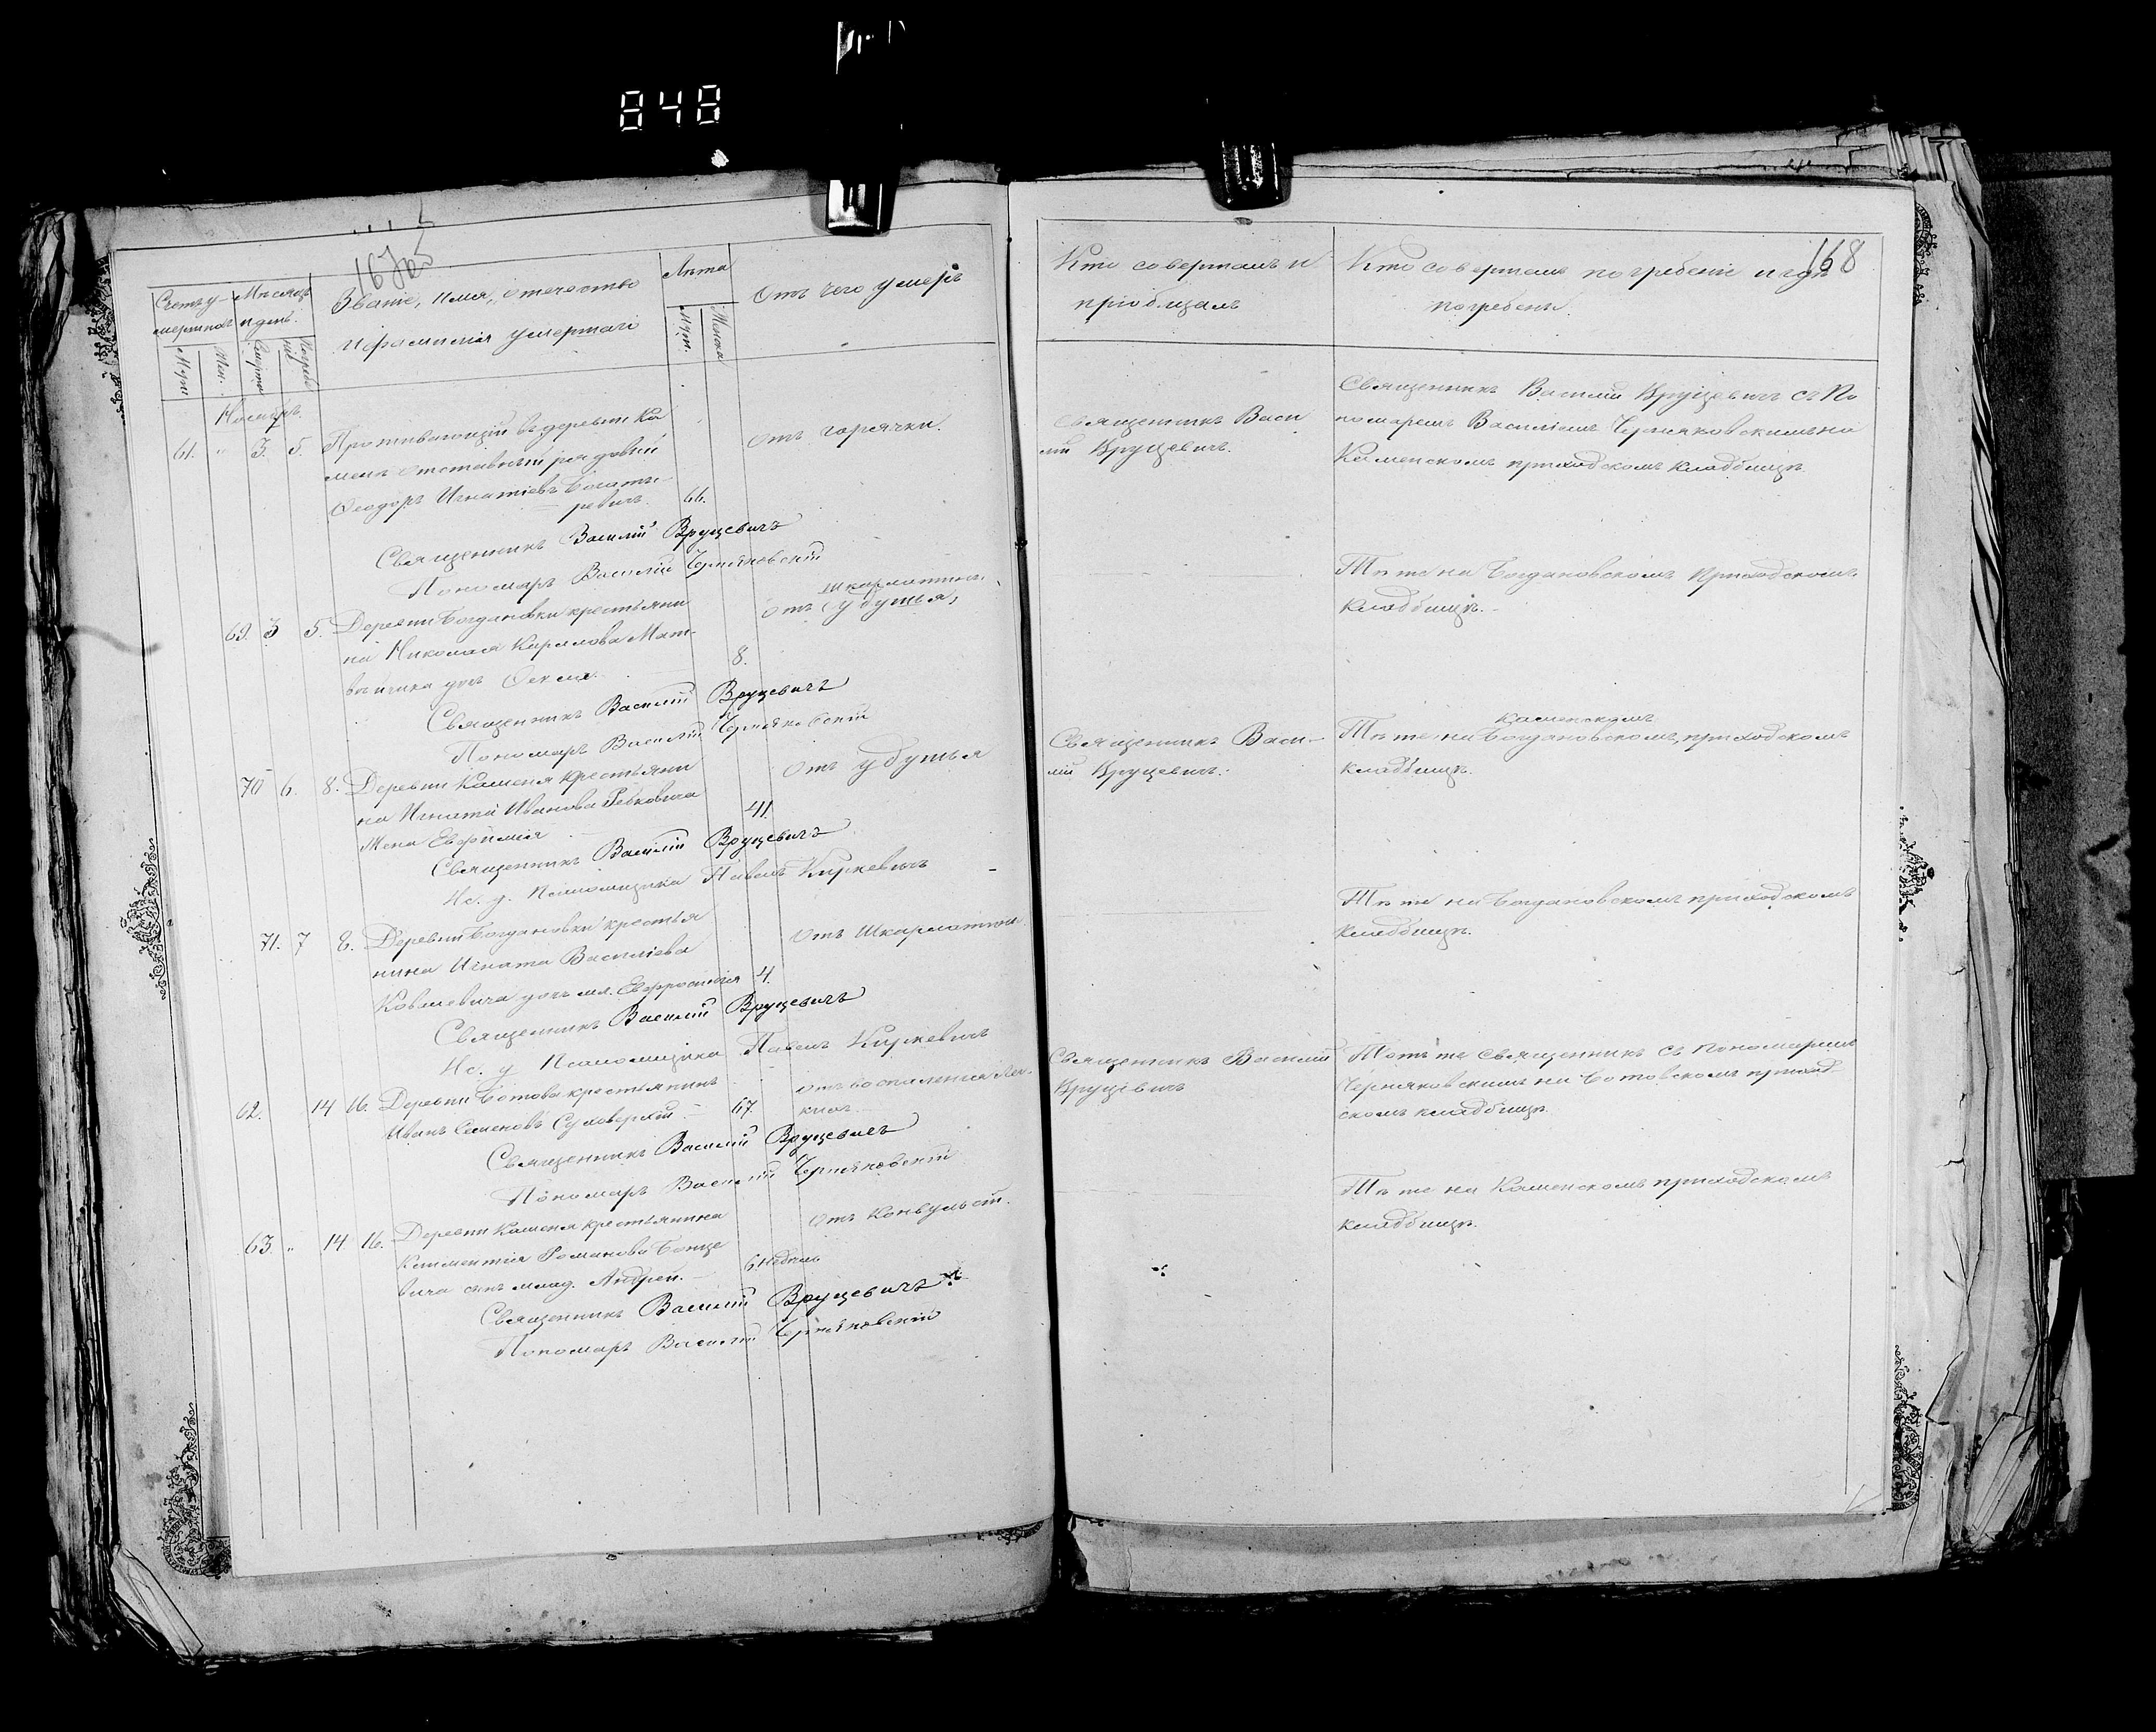 848
168
Счетъ у-
мершихъ
Мѣсяцъ
и день.
Званіе, имя, отечество
и фамилія умершаго
Лѣта
Отъ чего умеръ
Муж.
Жен.
Смерти
Погребе
нія
Муж.
Женск.
Ноябрь.
61. " 3. 5. Проживающій въ деревни Ка
мень отставный рядовый
Ѳеодоръ Игнатіевъ Богаты-
ревичъ. 66.
Отъ горячки.
Священникъ Василій Вруцевичъ
Пономарь Василій Черняковскій
69. 3 5. Деревни Богдановки крестьяни
на Николая Карплова Мат-
вѣйчика дочь Ѳекла. 8.
шкарлатины.
Отъ (удушья)
Священникъ Василій Вруцевичъ
Пономарь Василій Черняковскій
70 6. 8. Деревни Каменя крестьяни
на Игнатія Иванова Рабковича
жена Евфимія 41.
Отъ удушья
Священникъ Василій Вруцевичъ
Ис. д. Псаломщика Павелъ Киркевичъ
71. 7 8. Деревни Богдановки крестья
нина Игната Василіева
Ковалевича дочь мл. Евфросинія 4.
Отъ Шкарлатины.
Священникъ Василій Вруцевичъ
Ис. д Псаломщика Павелъ Киркевичъ
62. 14 16. Деревни Ботова крестьянинъ
Иванъ Семеновъ Суховерхій. 67.
Отъ воспаленія лег-
кихъ.
Священникъ Василій Вруцевичъ
Пономарь Василій Черняковскій
63 " 14 16. Деревни Каменя крестьянина
Климентія Романова Бонце
вича сынъ млад. Андрей. 6 недѣль
Отъ Конвульсій.
Священникъ Василій Вруцевичъ
Пономарь Василій Черняковскій
Кто совершалъ и
пріобщалъ
Кто совершалъ погребеніе и гдѣ
погребены.
Священникъ Васи
лій Вруцевичъ.
Священникъ Василій Вруцевичъ съ По
номаремъ Василіемъ Черняковскимъ на
Каменскомъ приходскомъ кладбищѣ.
Тѣ же на Богдановскомъ приходскомъ
кладбищѣ.
Священникъ Васи-
лій Вруцевичъ.
Каменскомъ
Тѣ же на Богдановскомъ, приходскомъ
кладбищѣ.
Тѣ же на Богдановскомъ приходскомъ
кладбищѣ.
Священникъ Василій
Вруцевичъ
Тотъ же Священникъ съ Пономаремъ
Черняковскимъ на Ботовскомъ приход
скомъ кладбищѣ.
Тѣ же на Каменскомъ приходскомъ
кладбищѣ.